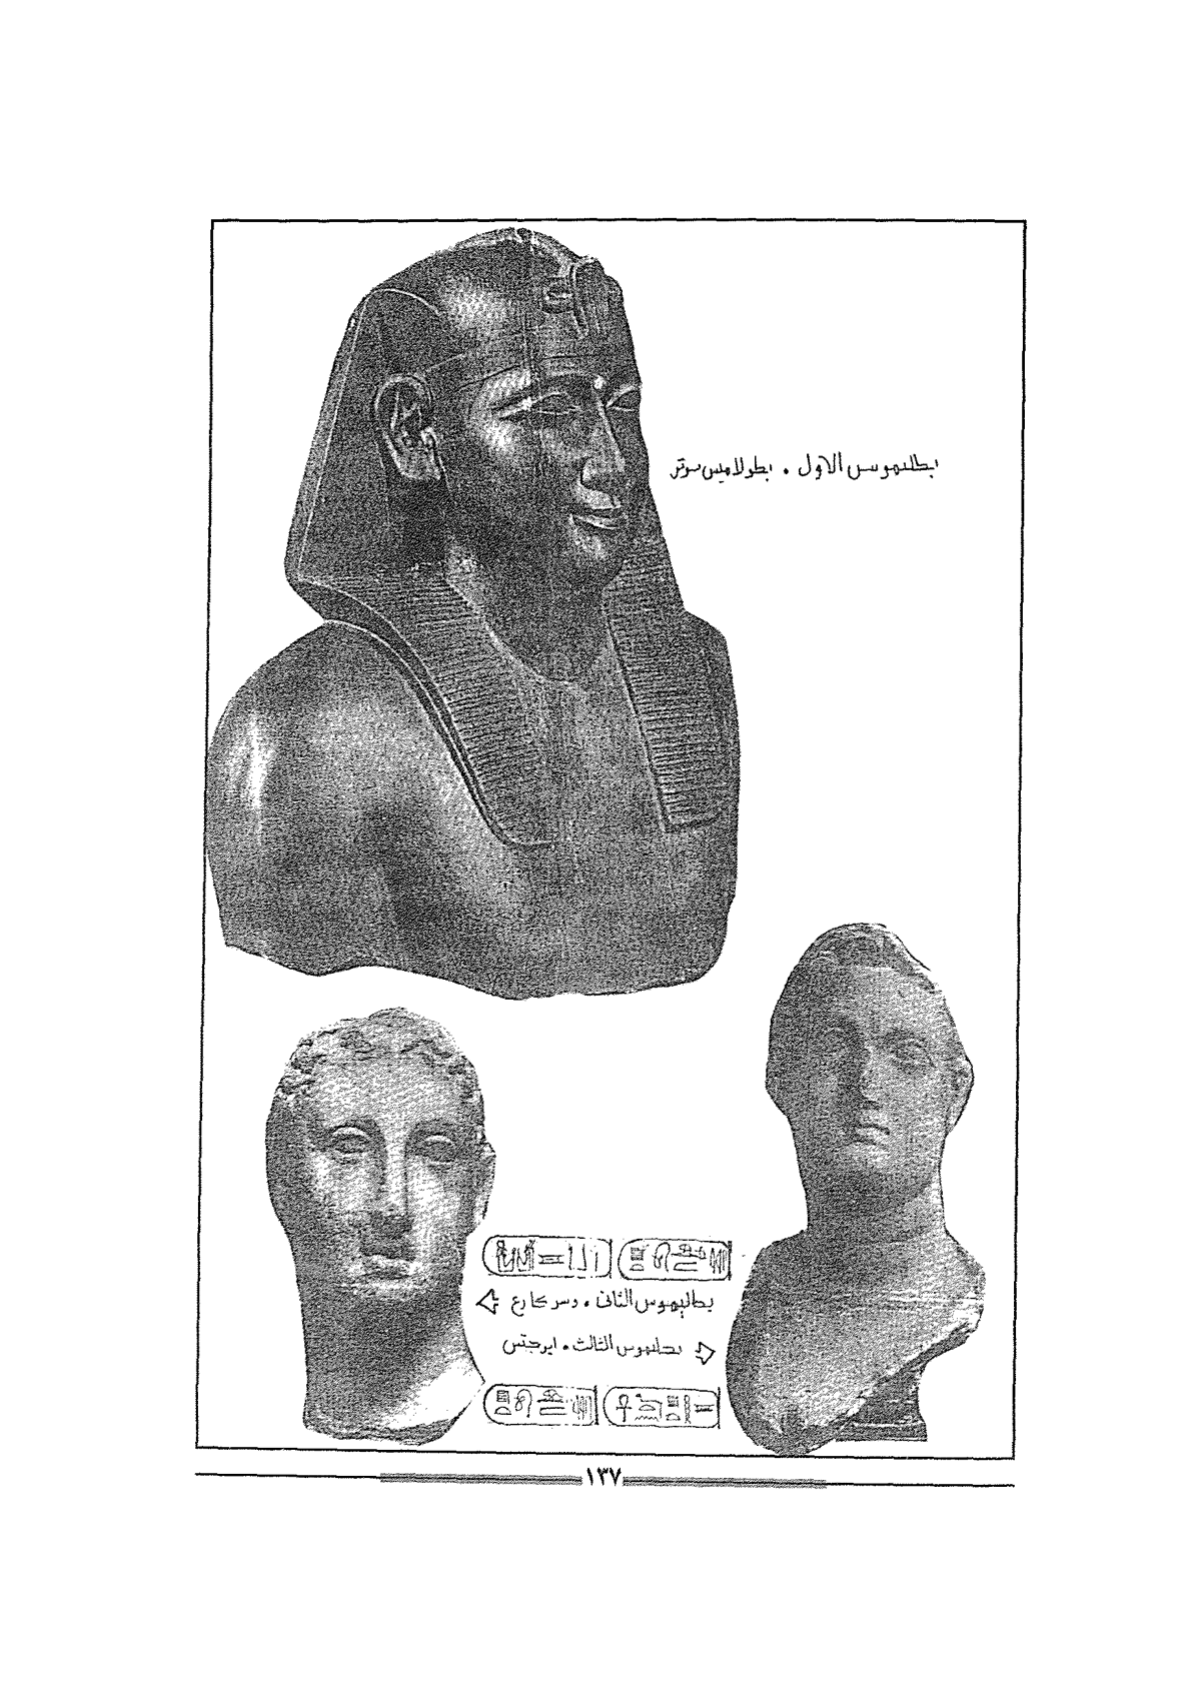 بطليموس الاول . بطولاميس سوتر
بطاليموس الثانى . وسر كا رع
بطليموس الثالث . ايرجتس
١٣٧